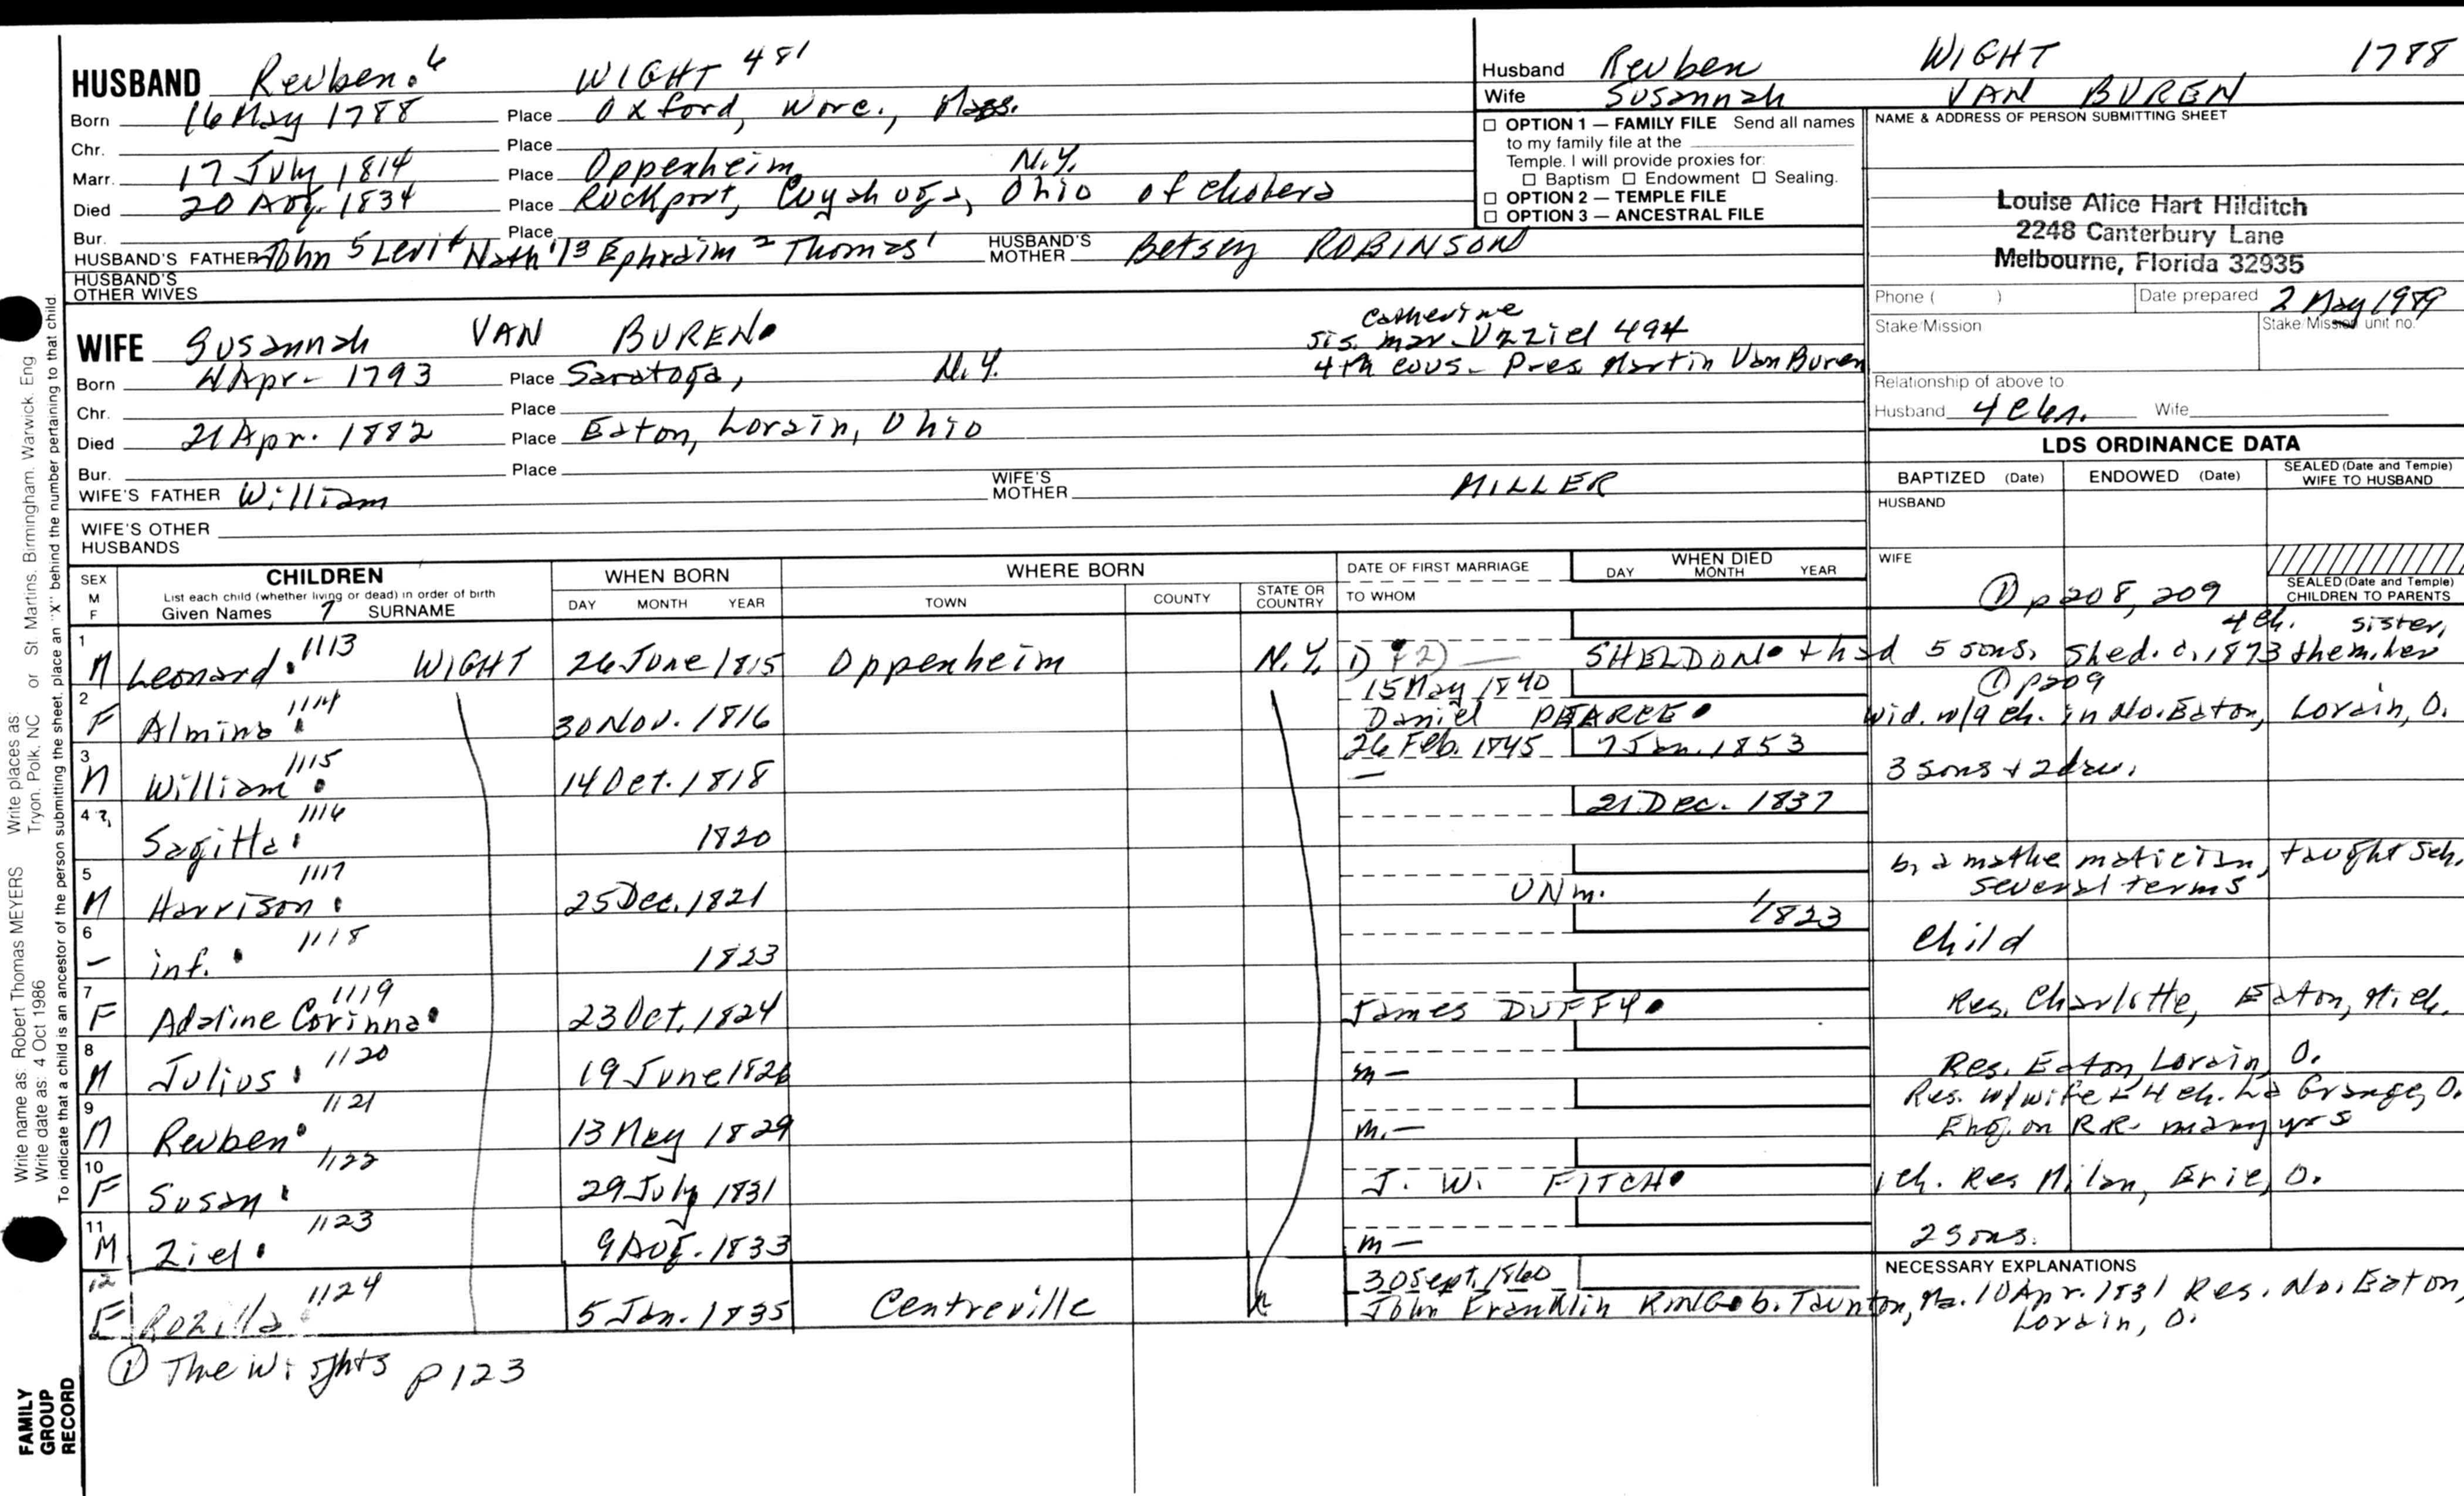 HUSBAND Reuben. 6 WIGHT 481
Born 16 May 1788 Place Oxford, Worc., Mass.
Chr. Place
Marr. 17 July 1814 Place Oppenheim, N.Y.
Died 20 Aug. 1834 Place Rockport, Cuyahoga, Ohio of cholera
Bur. Place
HUSBAND'S FATHER John 5 Levi 4 Nath'l 3 Ephraim 2 Thomas 1 HUSBAND'S MOTHER Betsey ROBINSON
HUSBAND'S OTHER WIVES
Husband Reuben WIGHT 1788
Wife Susannah VAN BUREN
☐ OPTION 1 — FAMILY FILE Send all names
to my family file at the
Temple. I will provide proxies for:
☐ Baptism ☐ Endowment ☐ Sealing.
☐ OPTION 2 — TEMPLE FILE
☐ OPTION 3 — ANCESTRAL FILE
NAME & ADDRESS OF PERSON SUBMITTING SHEET
Louise Alice Hart Hilditch
2248 Canterbury Lane
Melbourne, Florida 32935
Phone ( ) Date prepared 2 May 1989
Stake/Mission Stake/Mission unit no.
Relationship of above to
Husband 4 Wife
WIFE Susannah VAN BUREN.
Catherine
sis. mar. Uzziel 494
4th cous. Pres Martin Van Buren
Born 4 Apr. 1793 Place Saratoga, N.Y.
Chr. Place
Died 21 Apr. 1882 Place Eaton, Lorain, Ohio
Bur. Place
WIFE'S FATHER William WIFE'S MOTHER MILLER
WIFE'S OTHER HUSBANDS
LDS ORDINANCE DATA
BAPTIZED (Date) ENDOWED (Date) SEALED (Date and Temple) WIFE TO HUSBAND
HUSBAND
WIFE
SEALED (Date and Temple) CHILDREN TO PARENTS
① p 208, 209
SEX M F
CHILDREN
List each child (whether living or dead) in order of birth
Given Names 7 SURNAME
WHEN BORN
DAY MONTH YEAR
WHERE BORN
TOWN COUNTY STATE OR COUNTRY
DATE OF FIRST MARRIAGE
TO WHOM
WHEN DIED
DAY MONTH YEAR
4 ch. sister,
1 M Leonard. 1113 WIGHT 26 June 1815 Oppenheim N.Y. 1) (2) — SHELDON. + had 5 sons. d. 1873
① p209
2 F Almina 1114 30 Nov. 1816 15 May 1840 Daniel PEARCE. Wid. w/9 ch. in No. Eaton, Lorain, O.
3 M William. 1115 14 Oct. 1818 26 Feb. 1845 — 7 Jan. 1853 3 sons + 2 dau.
4 Sagitta. 1116 1820 21 Dec. 1837
5 M Harrison. 1117 25 Dec. 1821 UNm. a mathematician, taught sch. several terms
6 — inf. 1118 1823 1823 Child
7 F Adaline Corinna. 1119 23 Oct. 1824 James DUFFY. Res. Charlotte, Eaton, Mich.
8 M Julius. 1120 19 June 1826 m — Res. Eaton Lorain, O.
9 M Reuben. 1121 13 May 1829 m. — Res. w/wife + 4 ch. La Grange, O. Eng. on R.R. many yrs
10 F Susan. 1122 29 July 1831 J. W. FITCH. 1 ch. Res Milan, Erie, O.
11 M Ziel. 1123 9 Aug. 1833 m — 2 sons.
NECESSARY EXPLANATIONS
12 F Rozilla 1124 5 Jan. 1835 Centreville 30 Sept. 1860 John Franklin RING. b. Taunton, Ma. 10 Apr. 1831 Res. No. Eaton, Lorain, O.
① The Wights p 123
Write name as: Robert Thomas MEYERS Write places as: Tryon, Polk, NC or St Martins, Birmingham, Warwick, Eng
Write date as: 4 Oct 1986
To indicate that a child is an ancestor of the person submitting the sheet, place an "X" behind the number pertaining to that child.
FAMILY GROUP RECORD